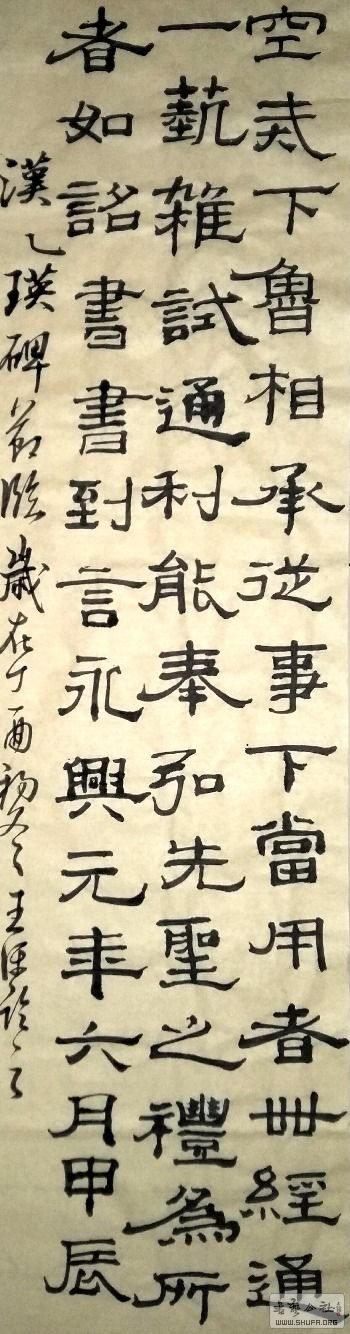 空戒下魯相承從事下當用者卌經通
一蓺雜試通利能奉弘先聖之禮為所
者如詔書書到言永興元年六月甲辰
漢乙瑛碑節臨歲在丁酉初冬王
书艺公社
WWW.SHUFA.ORG